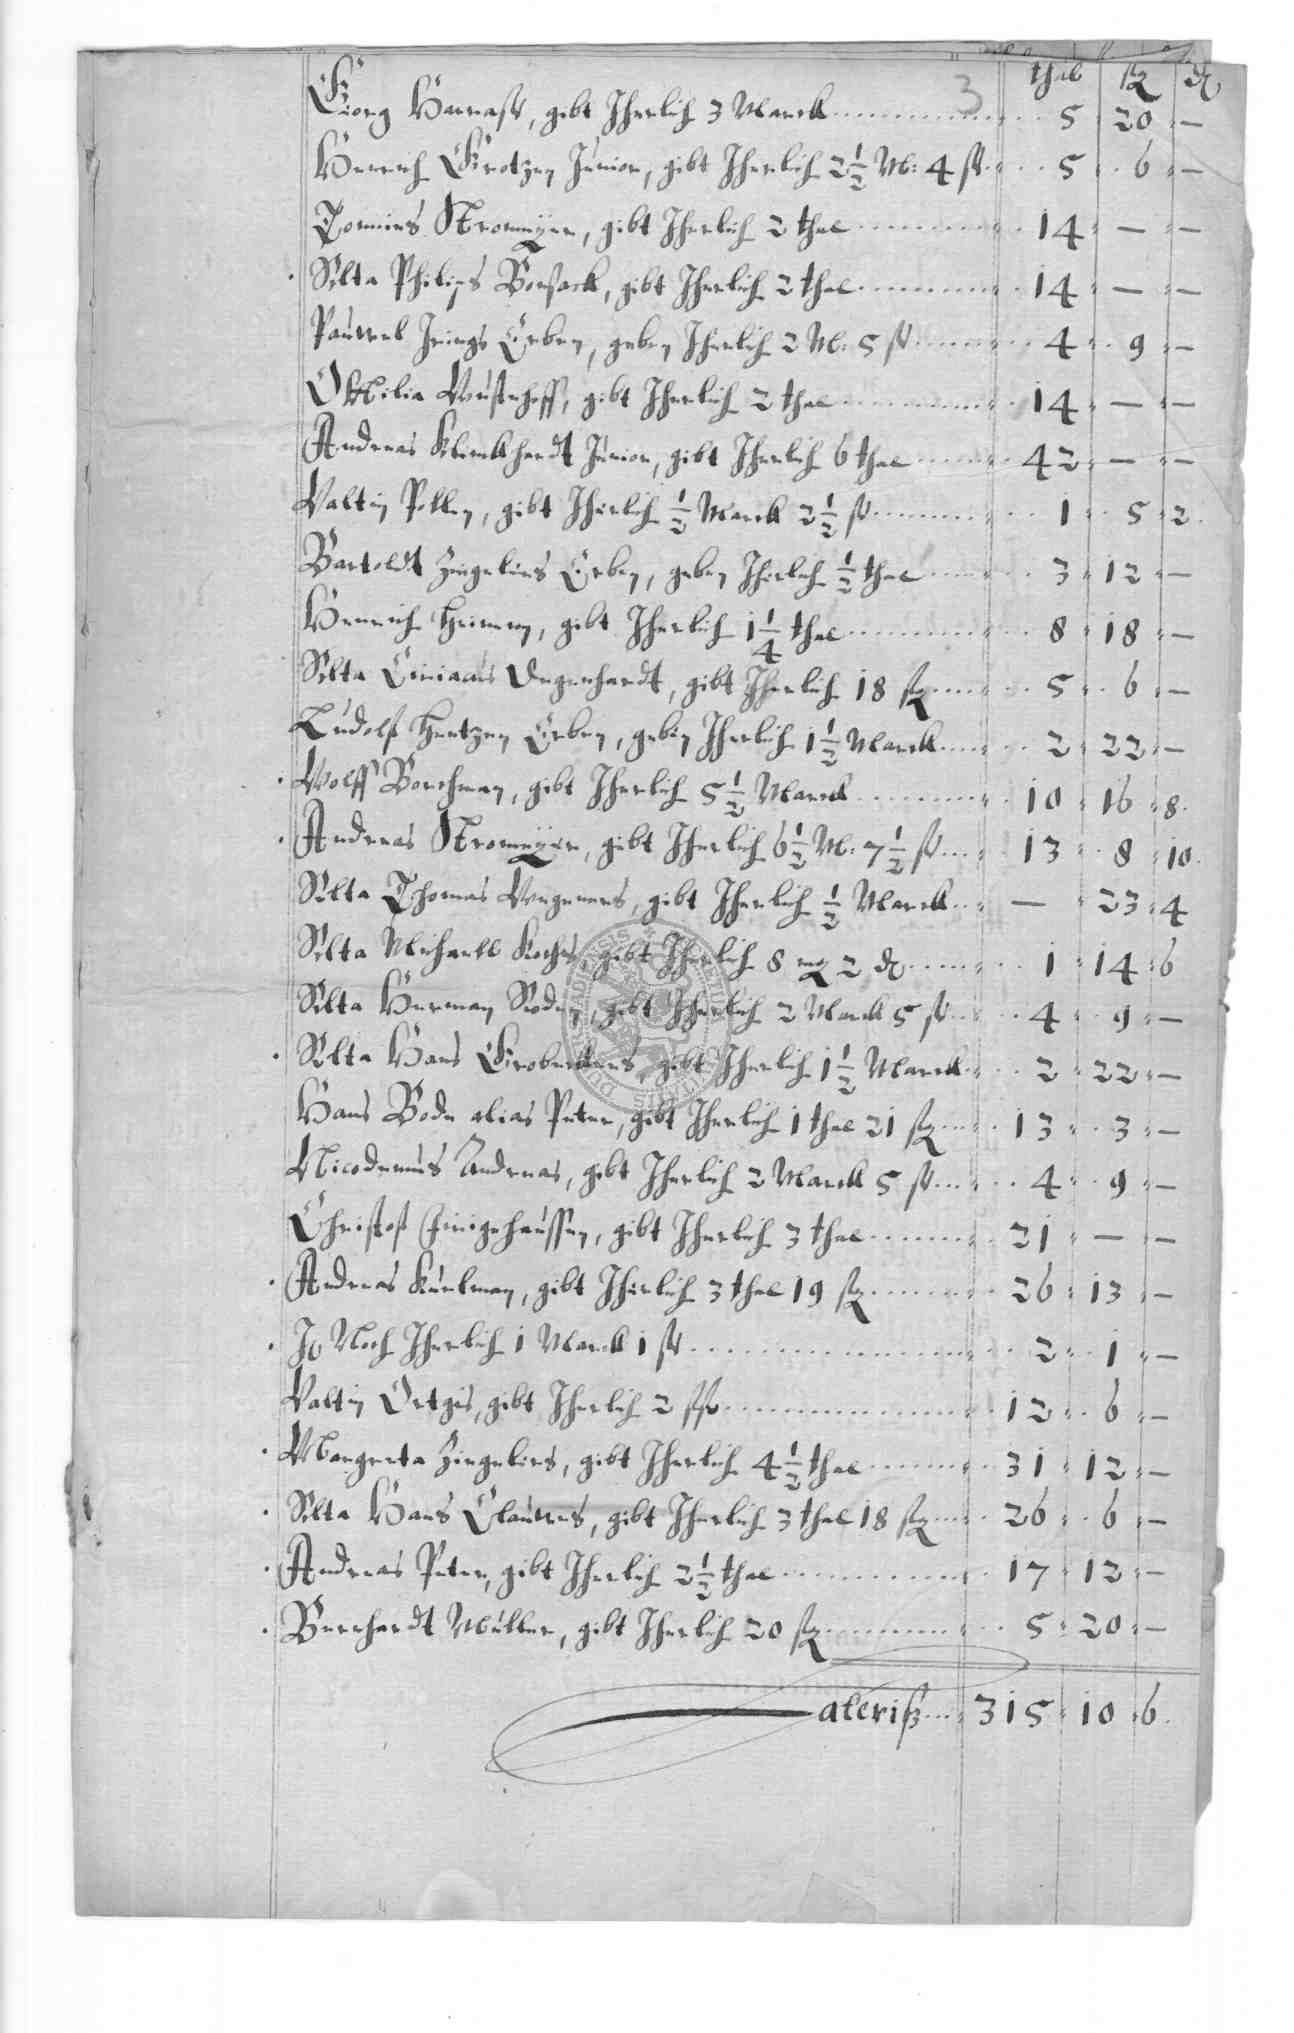 3 thal ßg d
Georg Harraß, gibt Jherlich 3 Marck 5 20 —
Henrich Grotzen Junior, gibt Jherlich 2 1/2 M: 4 ß 5 6 —
Tonnies Stromeÿer, gibt Jherlich 2 thal 14 — —
Relta Philips Borsack, gibt Jherlich 2 thal 14 — —
Pauwel Jrings Erben, geben Jherlich 2 M: 5 ß 4 9 —
Ottilia Wustehoff, gibt Jherlich 2 thal 14 — —
Andreas Klinckhardt Junior, gibt Jherlich 6 thal 42 — —
Valtin Pollen, gibt Jherlich 1/2 Marck 2 1/2 ß 1 5 2
Bartoldt Zigelers Erben, geben Jherlich 1/2 thal 3 12 —
Henrich Heinen, gibt Jherlich 1 1/4 thal 8 18 —
Relta Ciriacus Degenhardt, gibt Jherlich 18 ßg 5 6 —
Ludolff Hertzen Erben, geben Jherlich 1 1/2 Marck 2 22 —
Wolff Borchman, gibt Jherlich 5 1/2 Marck 10 16 8
Andreas Stromeÿer, gibt Jherlich 6 1/2 M: 7 1/2 ß 13 8 10
Relta Thomas Wegeners, gibt Jherlich 1/2 Marck — 23 4
Relta Michaell Kochs, gibt Jherlich 8 mg 2 d 1 14 6
Relta Herman Roden, gibt Jherlich 2 Marck 5 ß 4 9 —
Relta Hans Grobeckers, gibt Jherlich 1 1/2 Marck 2 22 —
Hans Bode alias Peter, gibt Jherlich 1 thal 21 ßg 13 3 —
Nicodemus Andreas, gibt Jherlich 2 Marck 5 ß 4 9 —
Christoff Jnigehaussen, gibt Jherlich 3 thal 21 — —
Andreas Kulman, gibt Jherlich 3 thal 19 ßg 26 13 —
Jt Noch Jherlich 1 Marck 1 ß 2 1 —
Valtin Ortgis, gibt Jherlich 2 fl 12 6 —
Margreta Zigelers, gibt Jherlich 4 1/2 thal 31 12 —
Relta Hans Clauwes, gibt Jherlich 3 thal 18 ßg 26 6 —
Andreas Peter, gibt Jherlich 2 1/2 thal 17 12 —
Bernhardt Müller, gibt Jherlich 20 ßg 5 20 —
Lateriß 315 10 6